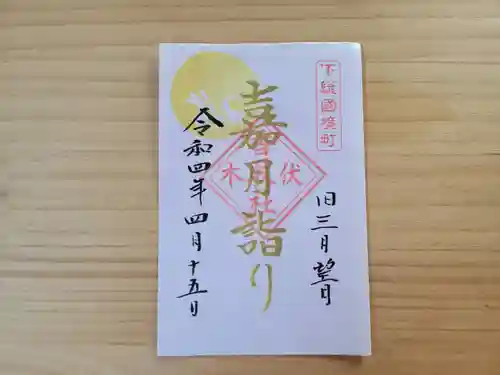 下総国境町
旧三月望月
嘉月詣り
伏木
社
令和四年四月十五日